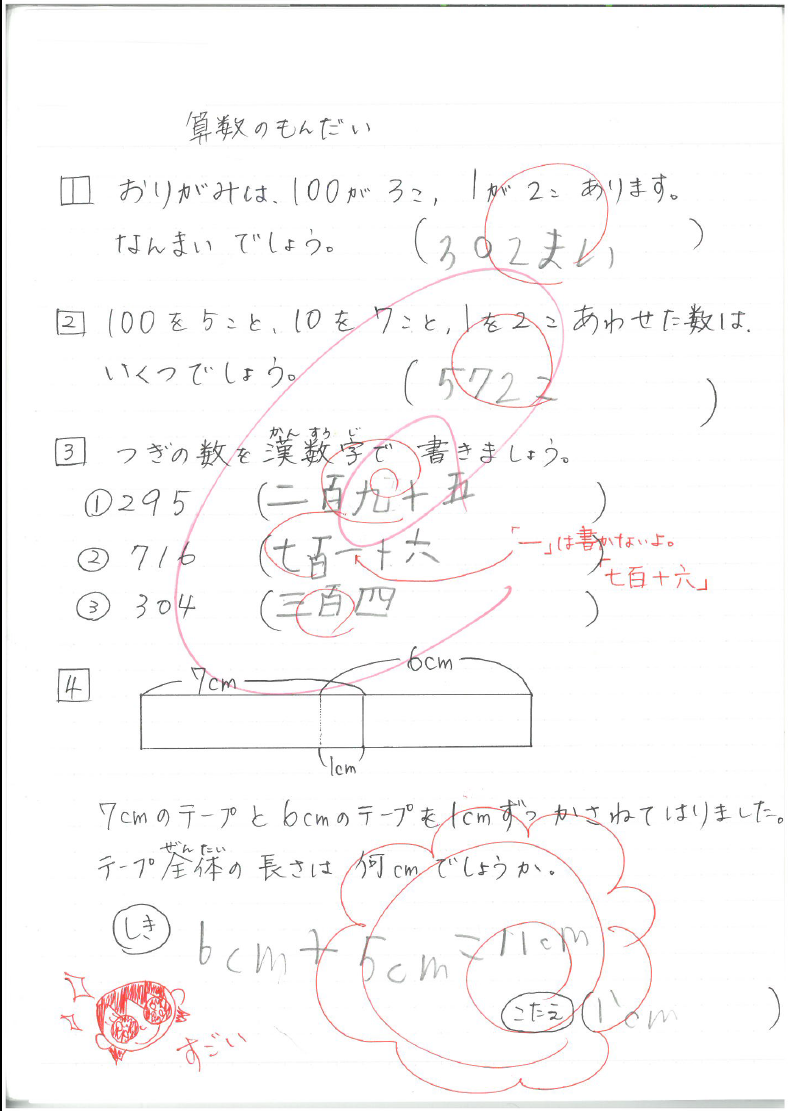 算数のもんだい
1 おりがみは、100が3こ, 1が2こ あります。
なんまい でしょう。 (302まい)
2 100を5こと、10を7こと, 1を2こ あわせた数は、
いくつでしょう。 (572こ)
3 つぎの数を漢数字で 書きましょう。
かん すう じ
①295 (二百九十五)
②716 (七百一十六)
「一」は書かないよ。
「七百十六」
③304 (三百四)
4
7cm
6cm
1cm
7cmのテープと6cmのテープを1cmずつかさねてはりました。
ぜん たい
テープ全体の長さは 何cmでしょうか。
しき 6cm+5cm=11cm
こたえ (11cm)
すごい